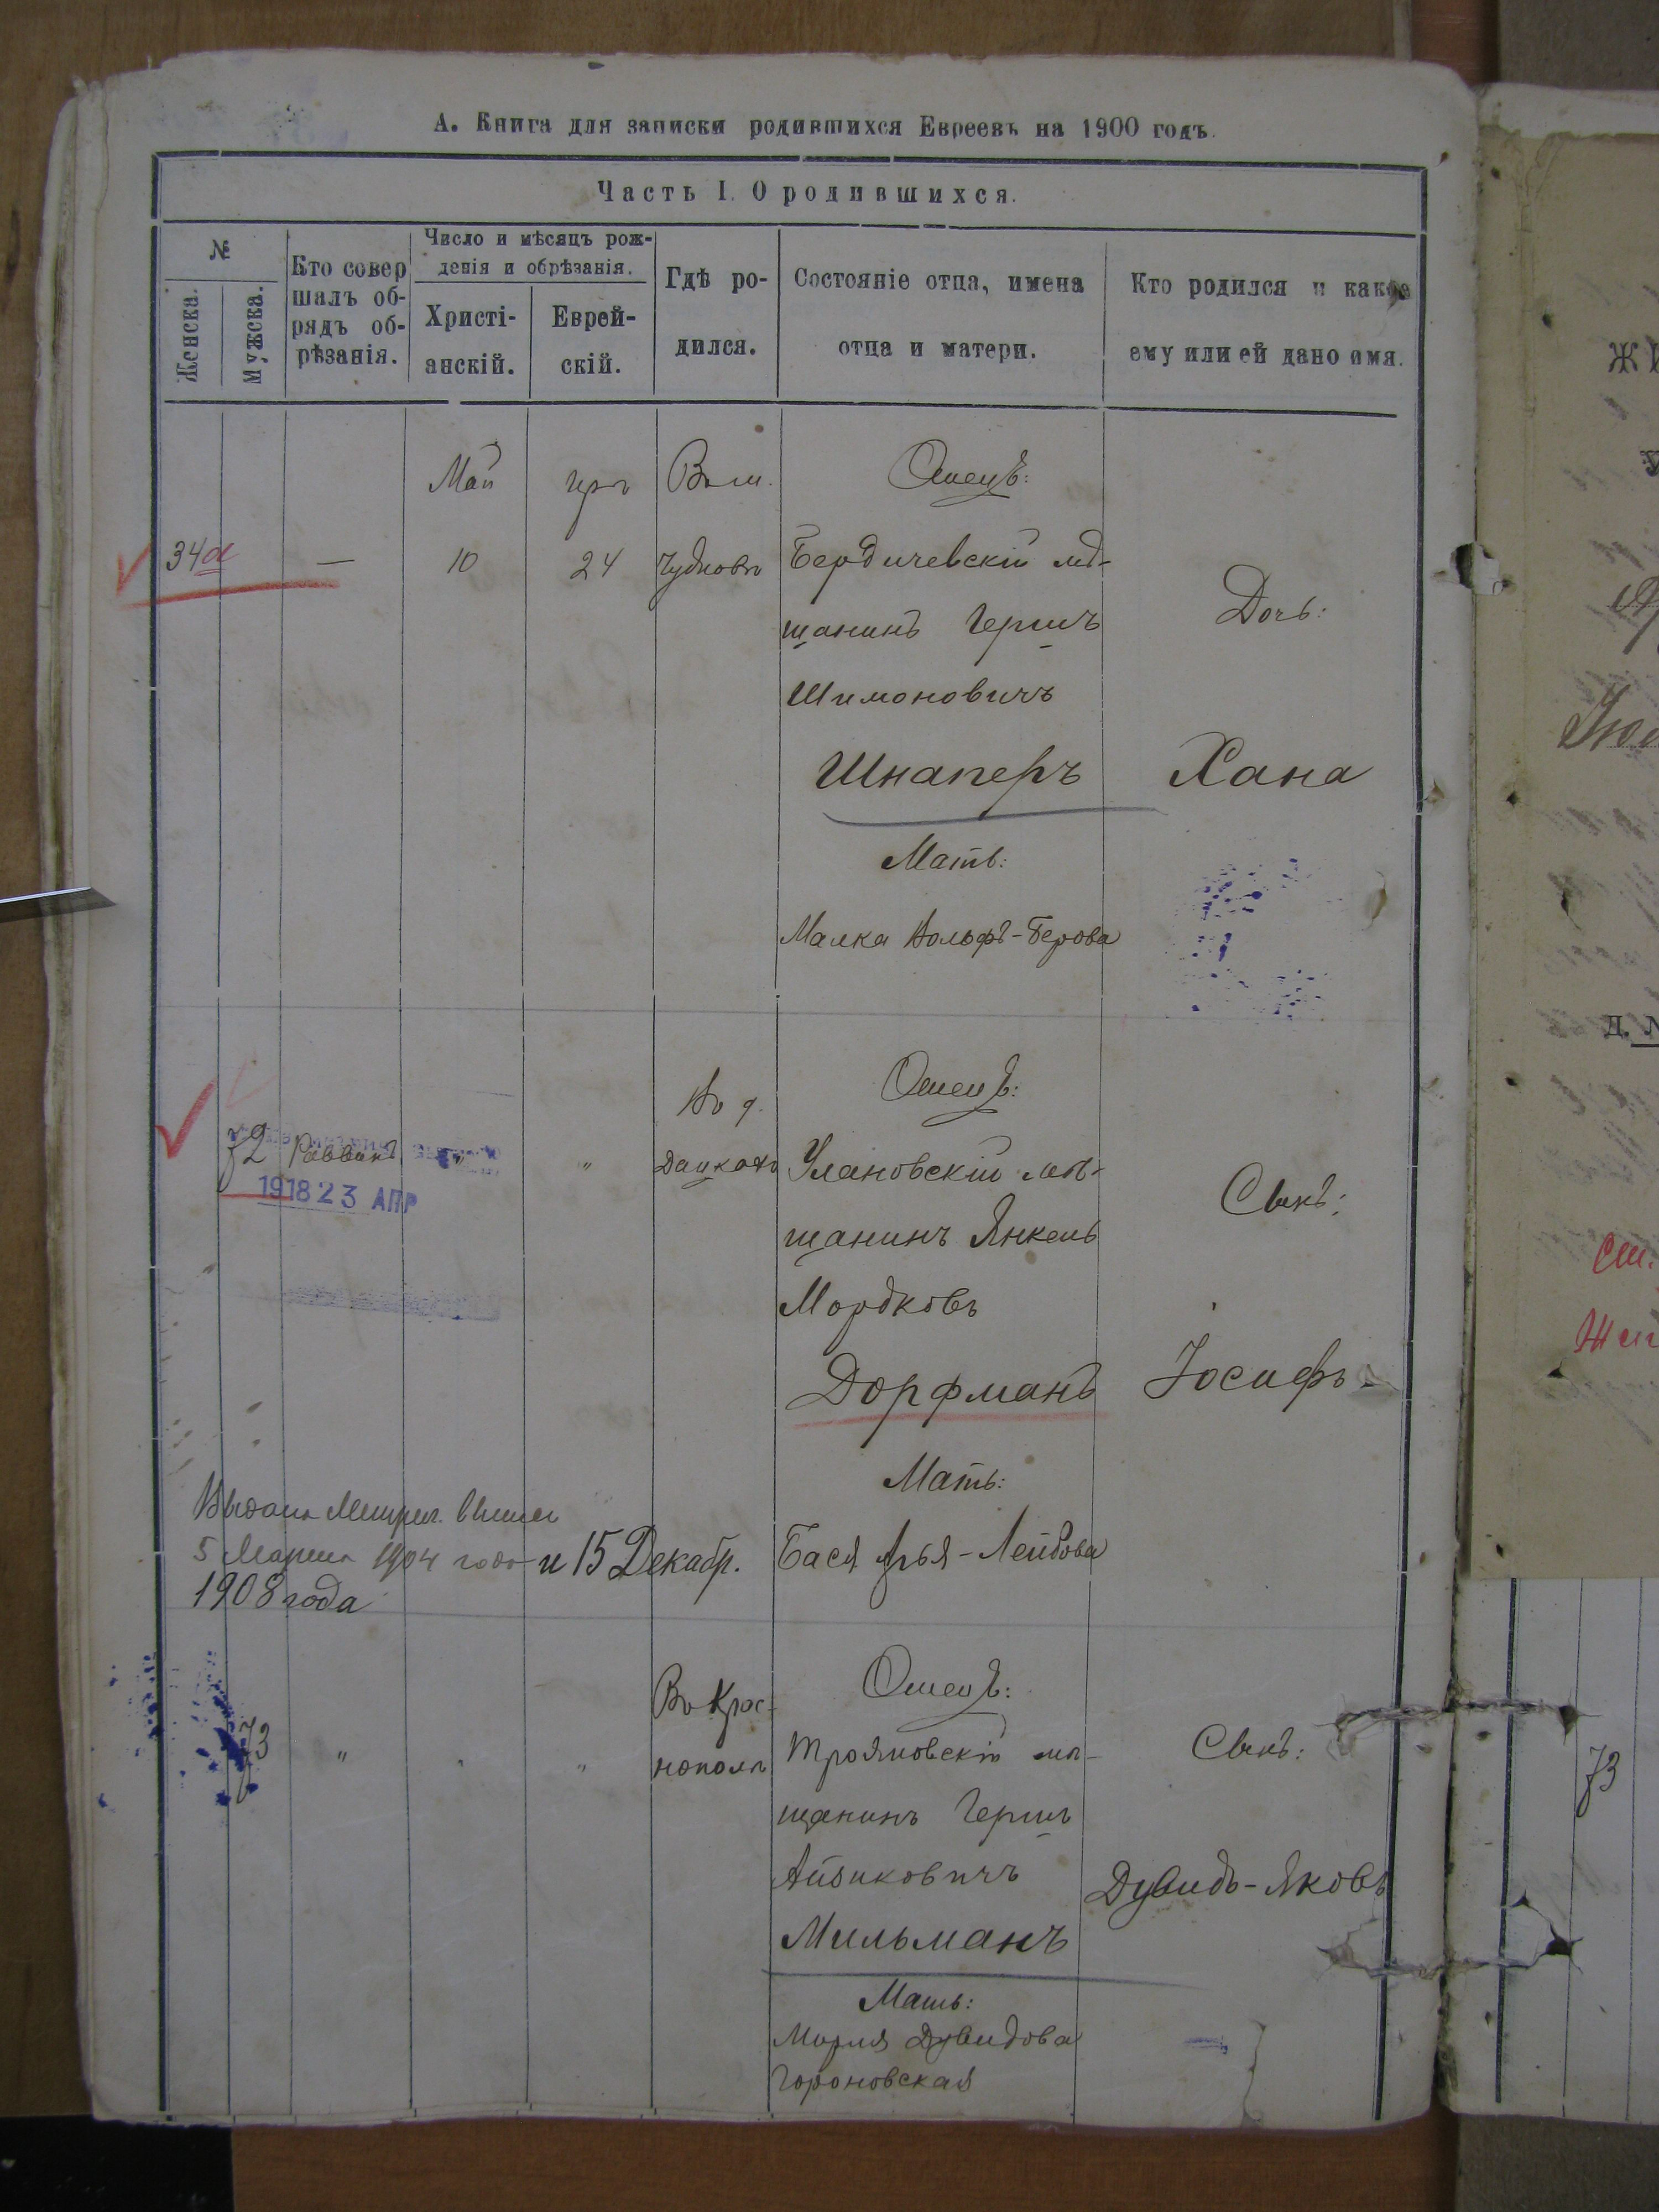 А. Книга для записки родившихся Евреевъ на 1900 годъ.
Часть I. О родившихся.
№
Женска.
Мужска.
Кто совер
шалъ об-
рядъ об-
рѣзанія.
Число и мѣсяцъ рож-
денія и обрѣзанія.
Христі-
анскій.
Еврей-
скій.
Гдѣ ро-
дился.
Состояніе отца, имена
отца и матери.
Кто родился и какое
ему или ей дано имя.
Май
Въ м.
Отецъ:
34а
—
10
24
Чудновъ
Бердичевскій мѣ-
щанинъ Гершъ
Шимоновичъ
Шнаперъ
Мать:
Малка Вольфъ-Берова
Дочь:
Хана
72
Раввинъ
"
"
1918 23 АПР
Отецъ:
Улановскій мѣ-
щанинъ Янкель
Мордковъ
Дорфманъ
Мать:
Бася Арья-Лейбова
Сынъ:
Іосифъ
5 Марта 1904 года и 15 Декабр.
1908 года
73
"
"
"
Въ Крас-
нополѣ
Отецъ:
Трояновскій мѣ-
щанинъ Гершъ
Айзиковичъ
Мильманъ
Мать:
Дувидова
Сынъ:
Дувидъ-Яковъ
73